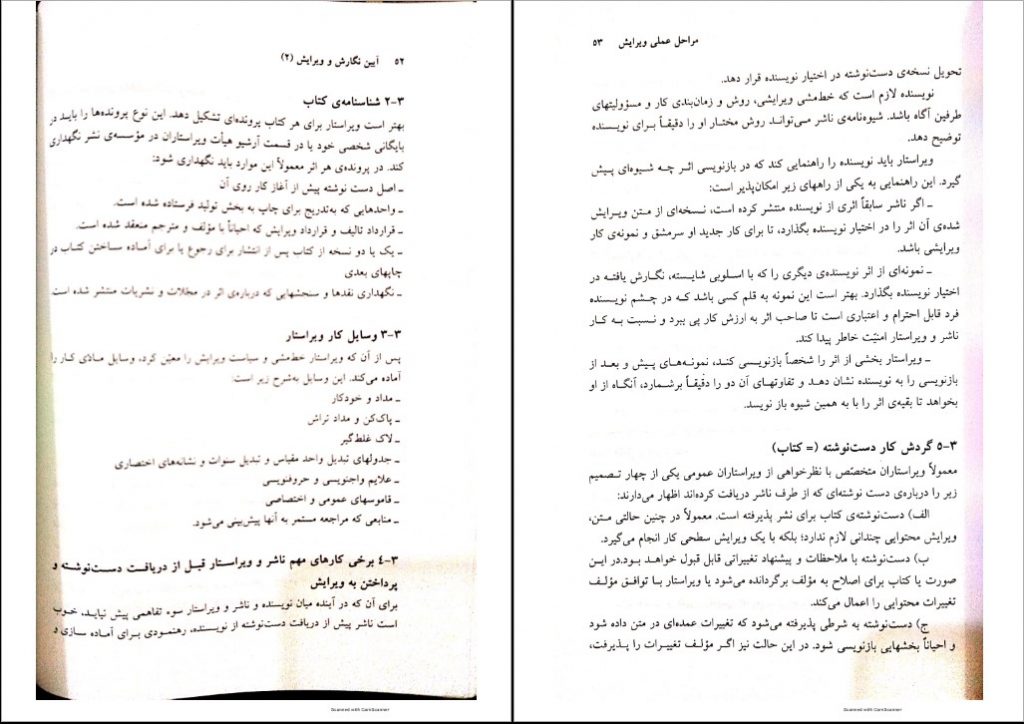 ۵۲ آیین نگارش و ویرایش (۲)
۳-۲ شناسنامه‌ی کتاب
بهتر است ویراستار برای هر کتاب پرونده‌ای تشکیل دهد. این نوع پرونده‌ها را باید در
بایگانی شخصی خود یا در قسمت آرشیو هیأت ویراستاران در مؤسسه‌ی نشر نگهداری
کند. در پرونده‌ی هر اثر معمولاً این موارد باید نگهداری شود:
ـ اصل دست نوشته پیش از آغاز کار روی آن
ـ واحدهایی که به‌تدریج برای چاپ به بخش تولید فرستاده شده است.
ـ قرارداد تالیف و قرارداد ویرایش که احیاناً با مؤلف و مترجم منعقد شده است.
ـ یک یا دو نسخه از کتاب پس از انتشار برای رجوع یا برای آماده ساختن کتاب در
چاپهای بعدی
ـ نگهداری نقدها و سنجشهایی که درباره‌ی اثر در مجلات و نشریات منتشر شده است.
۳-۳ وسایل کار ویراستار
پس از آن که ویراستار خط‌مشی و سیاست ویرایش را معیّن کرد، وسایل مادّی کار را
آماده می‌کند. این وسایل به‌شرح زیر است:
ـ مداد و خودکار
ـ پاک‌کن و مداد تراش
ـ لاک غلط‌گیر
ـ جدولهای تبدیل واحد مقیاس و تبدیل سنوات و نشانه‌های اختصاری
ـ علایم واجنویسی و حروفنویسی
ـ قاموسهای عمومی و اختصاصی
ـ منابعی که مراجعه مستمر به آنها پیش‌بینی می‌شود.
۳-۴ برخی کارهای مهم ناشر و ویراستار قبل از دریافت دست‌نوشته و
پرداختن به ویرایش
برای آن که در آینده میان نویسنده و ناشر و ویراستار سوء تفاهمی پیش نیاید، خوب
است ناشر پیش از دریافت دست‌نوشته از نویسنده، رهنمودی برای آماده سازی و
مراحل عملی ویرایش ۵۳
تحویل نسخه‌ی دست‌نوشته در اختیار نویسنده قرار دهد.
نویسنده لازم است که خط‌مشی ویرایشی، روش و زمان‌بندی کار و مسؤولیتهای
طرفین آگاه باشد. شیوه‌نامه‌ی ناشر می‌تواند روش مختار او را دقیقاً برای نویسنده
توضیح دهد.
ویراستار باید نویسنده را راهنمایی کند که در بازنویسی اثر چه شیوه‌ای پیش
گیرد. این راهنمایی به یکی از راههای زیر امکان‌پذیر است:
ـ اگر ناشر سابقاً اثری از نویسنده منتشر کرده است، نسخه‌ای از متن ویرایش
شده‌ی آن اثر را در اختیار نویسنده بگذارد، تا برای کار جدید او سرمشق و نمونه‌ی کار
ویرایشی باشد.
ـ نمونه‌ای از اثر نویسنده‌ی دیگری را که با اسلوبی شایسته، نگارش یافته در
اختیار نویسنده بگذارد. بهتر است این نمونه به قلم کسی باشد که در چشم نویسنده
فرد قابل احترام و اعتباری است تا صاحب اثر به ارزش کار پی ببرد و نسبت به کار
ناشر و ویراستار امنیّت خاطر پیدا کند.
ـ ویراستار بخشی از اثر را شخصاً بازنویسی کند، نمونه‌های پیش و بعد از
بازنویسی را به نویسنده نشان دهد و تفاوتهای آن دو را دقیقاً برشمارد، آنگاه از او
بخواهد تا بقیه‌ی اثر را با به همین شیوه باز نویسد.
۳-۵ گردش کار دست‌نوشته (= کتاب)
معمولاً ویراستاران متخصّص با نظرخواهی از ویراستاران عمومی یکی از چهار تصمیم
زیر را درباره‌ی دست نوشته‌ای که از طرف ناشر دریافت کرده‌اند اظهار می‌دارند:
الف) دست‌نوشته‌ی کتاب برای نشر پذیرفته است. معمولاً در چنین حالتی متن،
ویرایش محتوایی چندانی لازم ندارد؛ بلکه با یک ویرایش سطحی کار انجام می‌گیرد.
ب) دست‌نوشته با ملاحظات و پیشنهاد تغییراتی قابل قبول خواهد بود.در این
صورت یا کتاب برای اصلاح به مؤلف برگردانده می‌شود یا ویراستار با توافق مؤلف
تغییرات محتوایی را اعمال می‌کند.
ج) دست‌نوشته به شرطی پذیرفته می‌شود که تغییرات عمده‌ای در متن داده شود
و احیاناً بخشهایی بازنویسی شود. در این حالت نیز اگر مؤلف تغییرات را پذیرفت،
Scanned with CamScanner
Scanned with CamScanner